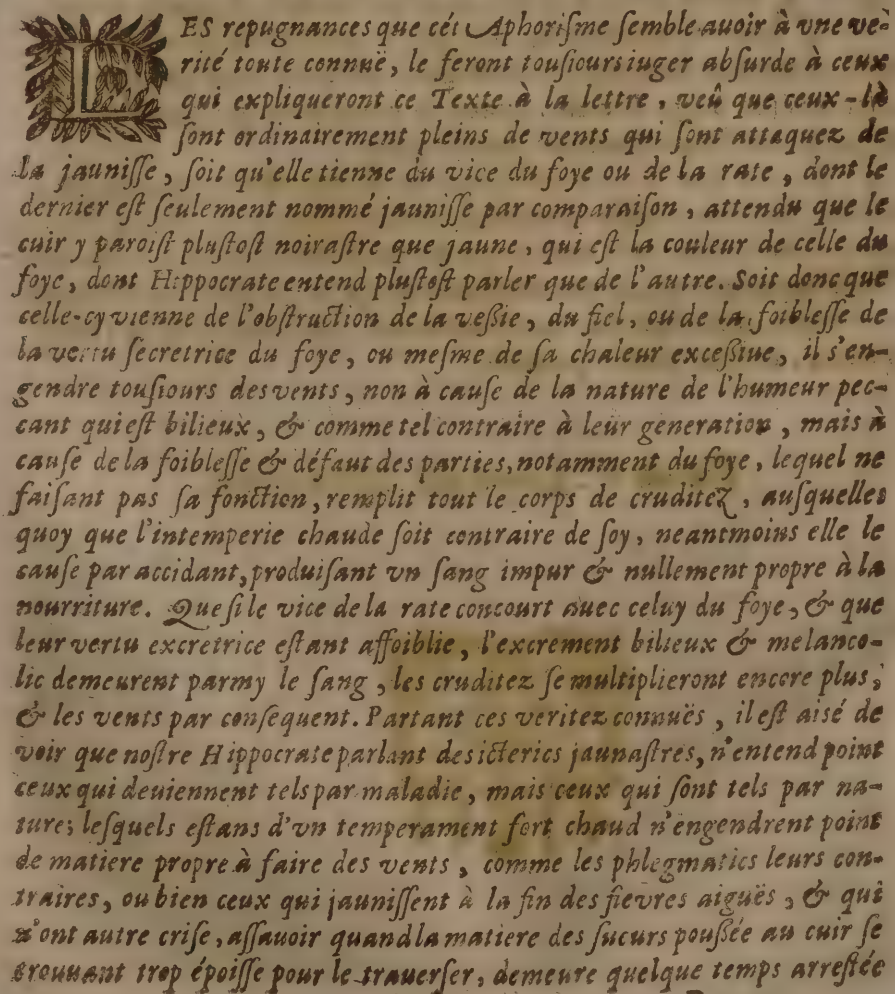 LES repugnances que cét Aphoriſme ſemble auoir à vne ve-
rité toute connuë, le feront touſiours iuger abſurde à ceux
qui expliqueront ce Texte à la lettre, veû que ceux-là
ſont ordinairement pleins de vents qui ſont attaquez de
la jauniſſe, ſoit qu'elle tienne du vice du foye ou de la rate, dont le
dernier eſt ſeulement nommé jauniſſe par comparaiſon, attendu que le
cuir y paroiſt pluſtoſt noiraſtre que jaune, qui eſt la couleur de celle du
foye, dont Hippocrate entend pluſtoſt parler que de l'autre. Soit donc que
celle-cy vienne de l'obſtruction de la veßie, du fiel, ou de la foibleſſe de
la vertu ſecretrice du foye, ou meſme de ſa chaleur exceßiue, il s'en-
gendre touſiours des vents, non à cauſe de la nature de l'humeur pec-
cant qui eſt bilieux, & comme tel contraire à leur generation, mais à
cauſe de la foibleſſe & défaut des parties, notamment du foye, lequel ne
faiſant pas ſa fonction, remplit tout le corps de cruditez, auſquelles
quoy que l'intemperie chaude ſoit contraire de ſoy, neantmoins elle le
cauſe par accidant, produiſant vn ſang impur & nullement propre à la
nourriture. Que ſi le vice de la rate concourt auec celuy du foye, & que
leur vertu excretrice eſtant affoiblie, l'excrement bilieux & melanco-
lic demeurent parmy le ſang, les cruditez ſe multiplieront encore plus,
& les vents par conſequent. Partant ces veritez connuës, il eſt aisé de
voir que noſtre Hippocrate parlant des icterics jaunaſtres, n'entend point
ceux qui deuiennent tels par maladie, mais ceux qui ſont tels par na-
ture; leſquels eſtans d'vn temperament fort chaud n'engendrent point
de matiere propre à faire des vents, comme les phlegmatics leurs con-
traires, ou bien ceux qui jauniſſent à la fin des fievres aiguës, & qui
n'ont autre criſe, aſſauoir quand la matiere des ſueurs pouſſée au cuir ſe
trouuant trop époiſſe pour le trauerſer, demeure quelque temps arreſtée